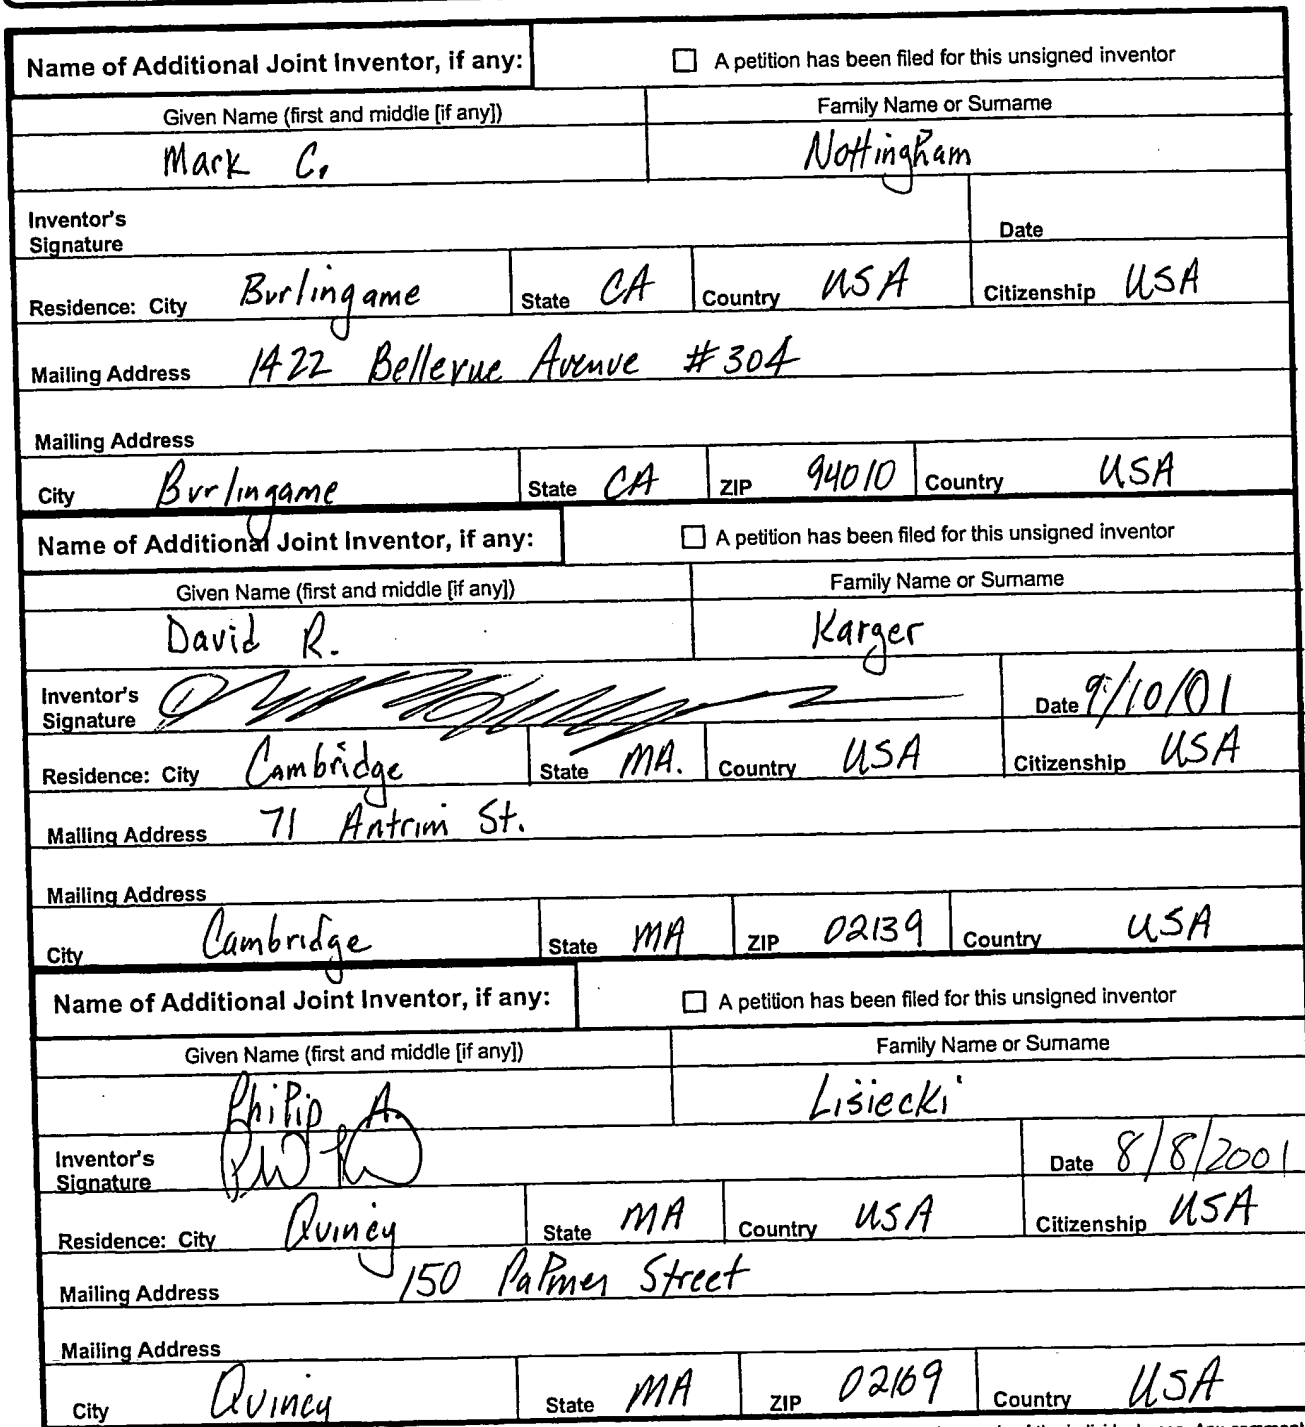 Name of Additional Joint Inventor, if any: ☐ A petition has been filed for this unsigned inventor
Given Name (first and middle [if any]) Family Name or Surname
Mark C. Nottingham
Inventor's
Signature Date
Residence: City Burlingame State CA Country USA Citizenship USA
Mailing Address 1422 Bellevue Avenue #304
Mailing Address
City Burlingame State CA ZIP 94010 Country USA
Name of Additional Joint Inventor, if any: ☐ A petition has been filed for this unsigned inventor
Given Name (first and middle [if any]) Family Name or Surname
David R. Karger
Inventor's
Signature Date 9/10/01
Residence: City Cambridge State MA. Country USA Citizenship USA
Mailing Address 71 Antrim St.
Mailing Address
City Cambridge State MA ZIP 02139 Country USA
Name of Additional Joint Inventor, if any: ☐ A petition has been filed for this unsigned inventor
Given Name (first and middle [if any]) Family Name or Surname
Philip A. Lisiecki
Inventor's
Signature Date 8/8/2001
Residence: City Quincy State MA Country USA Citizenship USA
Mailing Address 150 Palmer Street
Mailing Address
City Quincy State MA ZIP 02169 Country USA